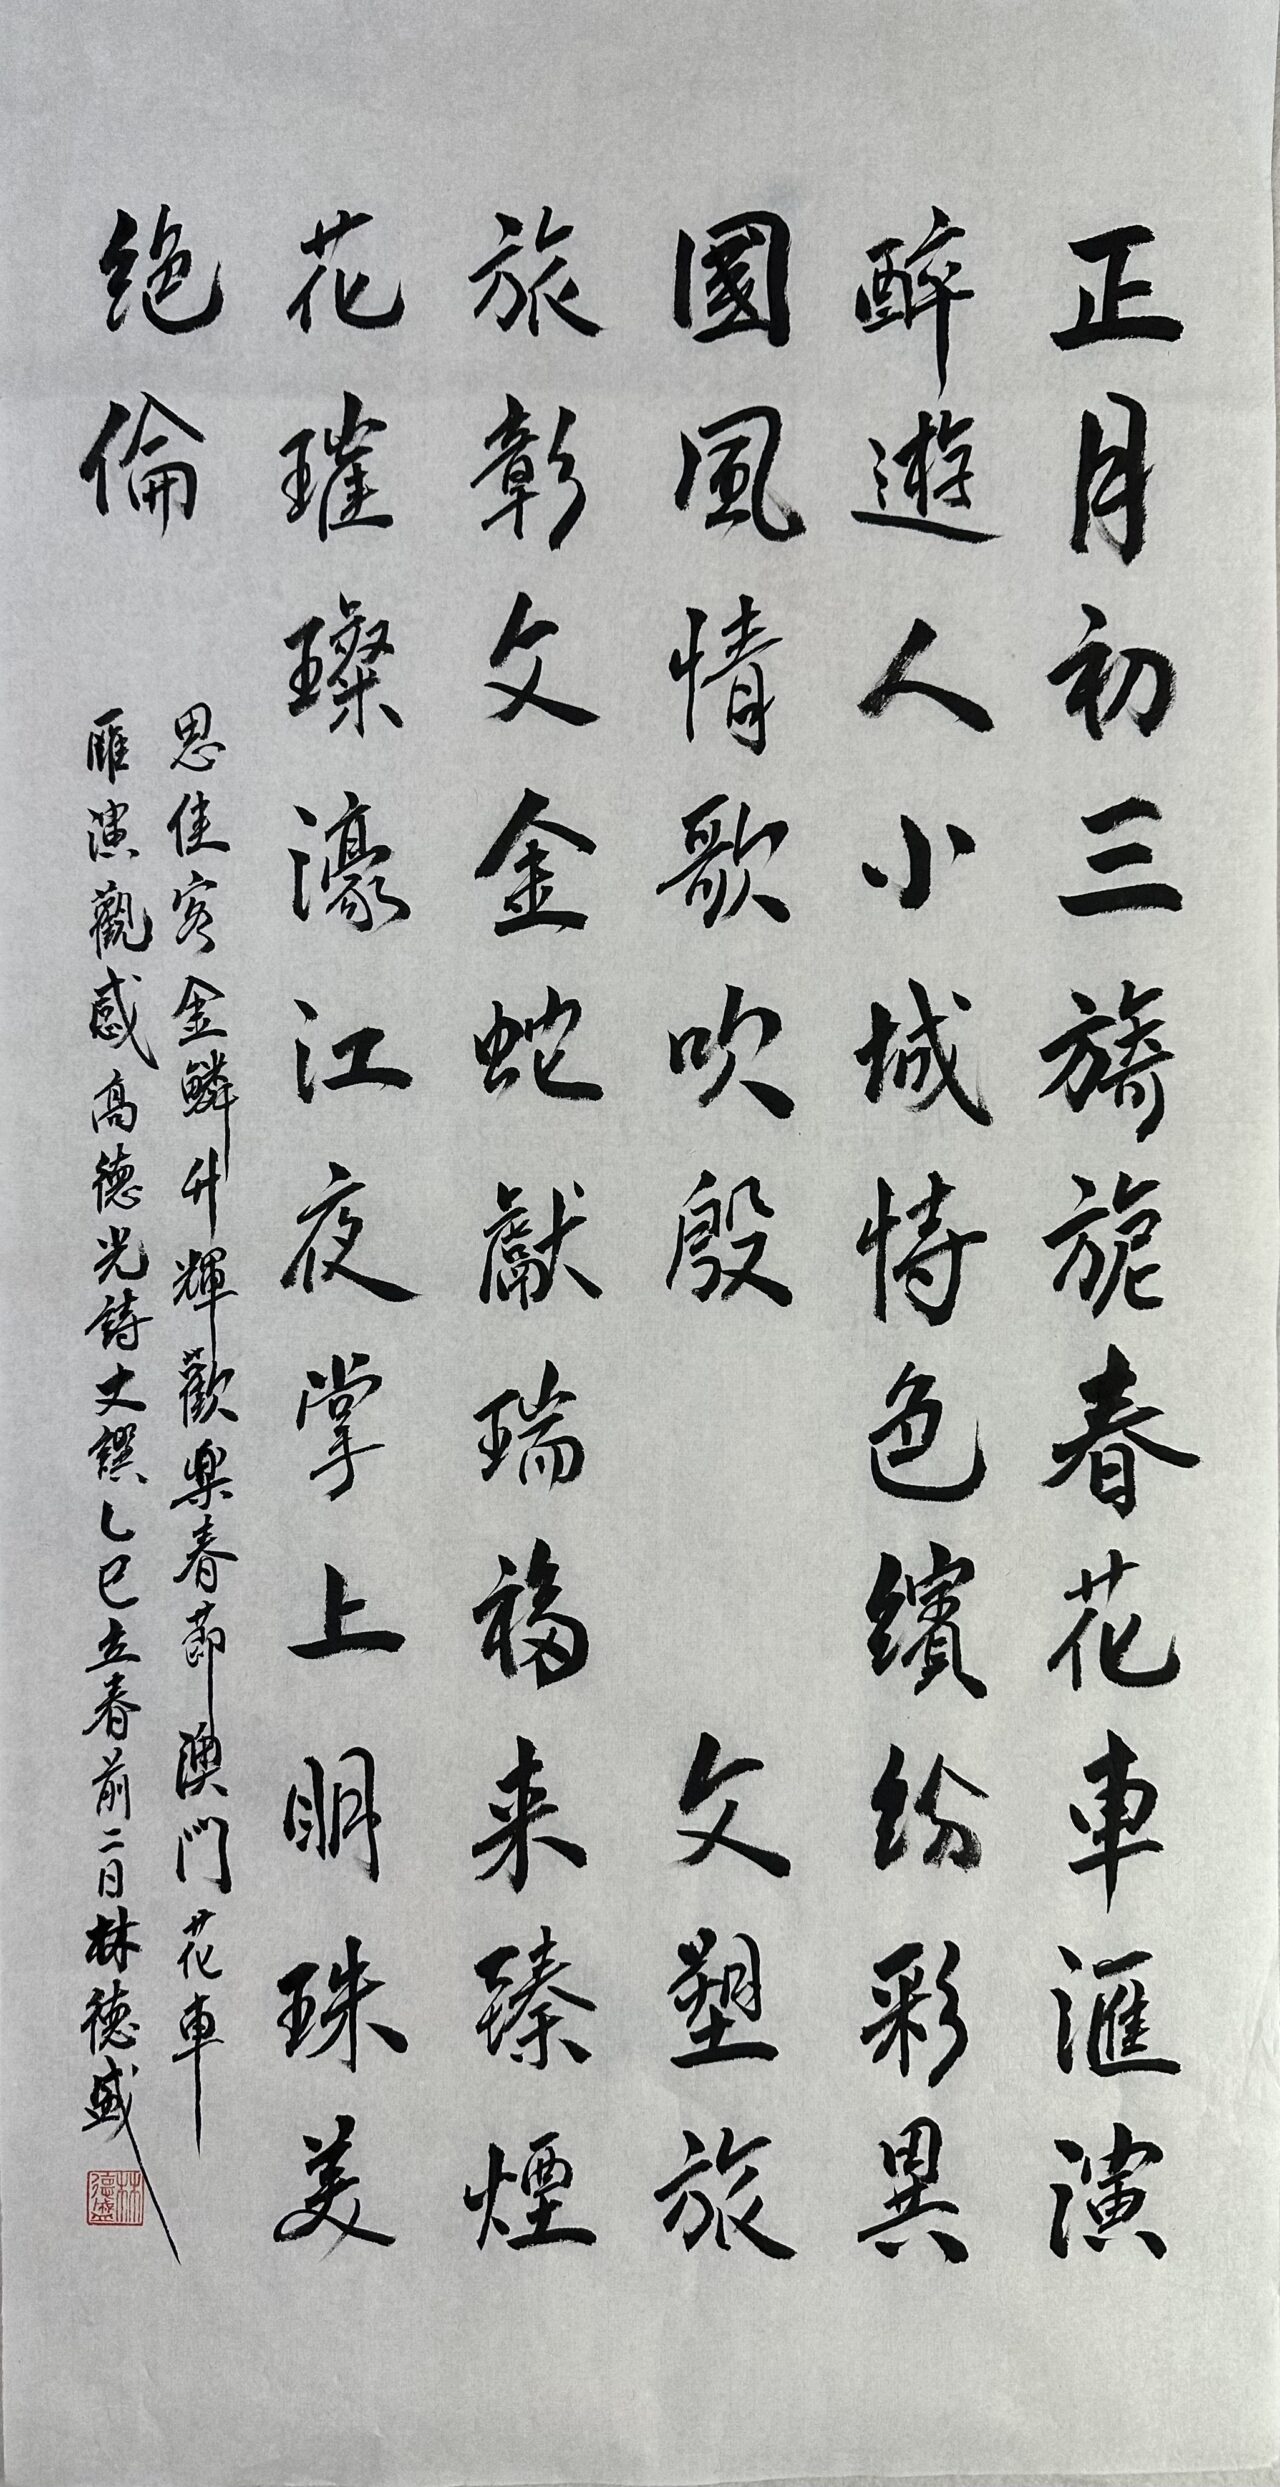 正月初三旖旎春花車滙演
醉遊人小城恃色繽紛彩異
國風情歌吹殷　文塑旅
旅彰文金蛇獻瑞福来臻煙
花璀璨濠江夜掌上明珠美
絶倫
思佳客金鱗升輝歡樂春節澳門花車
匯演觀感高德光詩丈譔乙巳立春前二日林德盛
林德盛